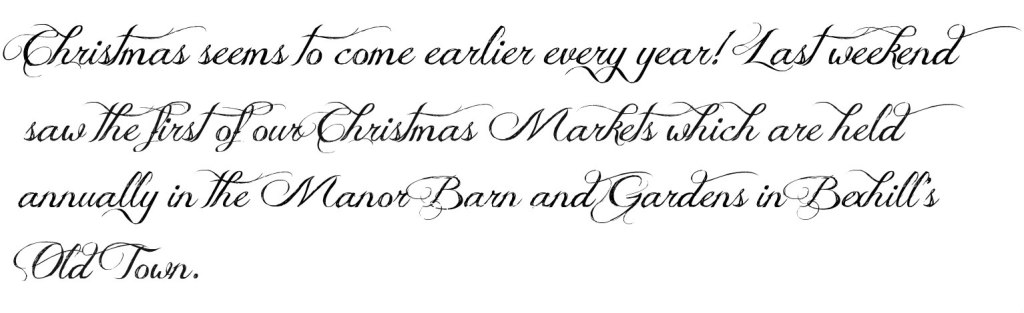 Christmas seems to come earlier every year! Last weekend
saw the first of our Christmas Markets which are held
annually in the Manor Barn and Gardens in Bexhill's
Old Town.